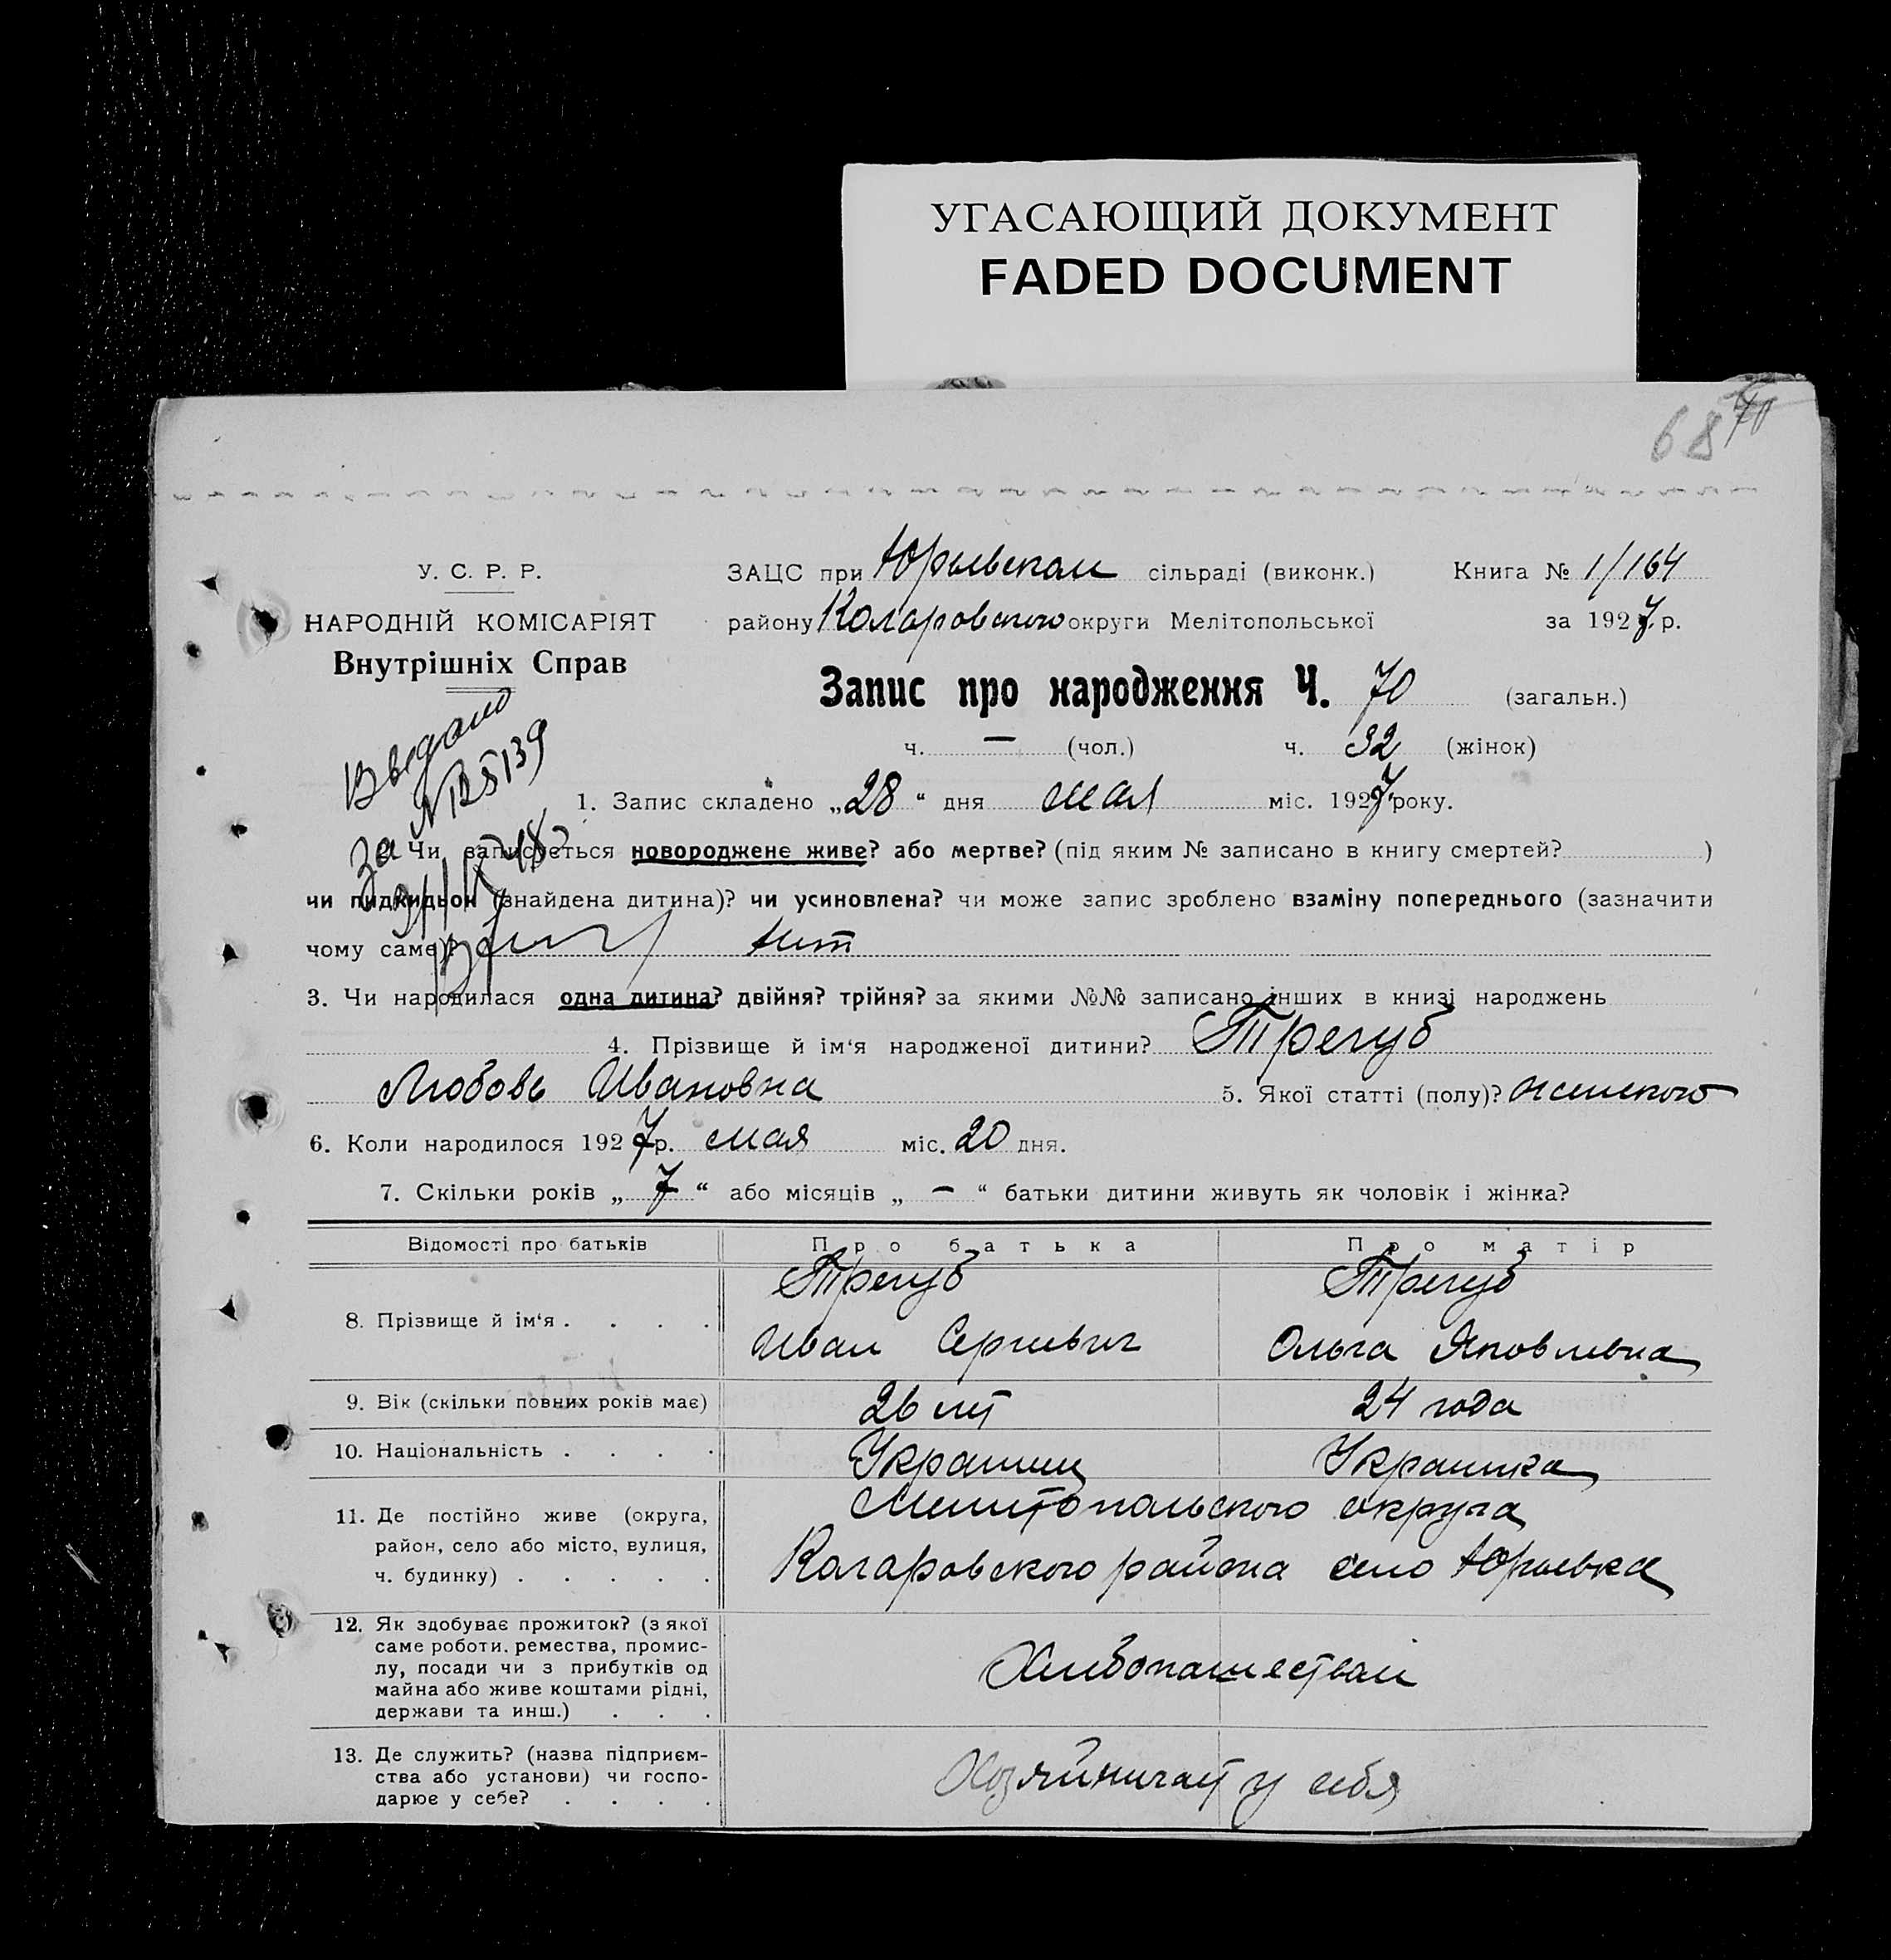 УГАСАЮЩИЙ ДОКУМЕНТ
FADED DOCUMENT
68
У. С. Р. Р.
НАРОДНІЙ КОМІСАРІЯТ
Внутрішніх Справ
ЗАЦС при Юрьевском сільраді (виконк.) Книга № 1/164
району Коларовского округи Мелітопольської за 1927 р.
Запис про народження Ч. 70 (загальн.)
ч. — (чол.) ч. 32 (жінок)
Видано
№ 5139
за
1. Запис складено „28“ дня мая міс. 1927 року.
Чи записується новороджене живе? або мертве? (під яким № записано в книгу смертей? )
чи підкидьок (знайдена дитина)? чи усиновлена? чи може запис зроблено взаміну попереднього (зазначити
чому саме)? нет
3. Чи народилася одна дитина? двійня? трійня? за якими №№ записано інших в книзі народжень
4. Прізвище й ім‘я народженої дитини? Трегуб
Любовь Ивановна 5. Якої статті (полу)? женского
6. Коли народилося 1927 р. мая міс. 20 дня.
7. Скільки років „7“ або місяців „—“ батьки дитини живуть як чоловік і жінка?
Відомості про батьків Про батька Про матір
8. Прізвище й ім‘я . . . . Трегуб Трегуб
Иван Сергеевич Ольга Яковлевна
9. Вік (скільки повних років має) 26 лет 24 года
10. Національність . . . . Украинец Украинка
11. Де постійно живе (округа, район, село або місто, вулиця, ч. будинку) . . . . . Мелитопольского округа
Коларовского района село Юрьевка
12. Як здобуває прожиток? (з якої
саме роботи. ремества, промис-
лу, посади чи з прибутків од
майна або живе коштами рідні,
держави та инш.) . . .
Хлебопашеством
13. Де служить? (назва підприєм-
ства або установи) чи госпо-
дарює у себе? . . . .
Хозяйничает у себя